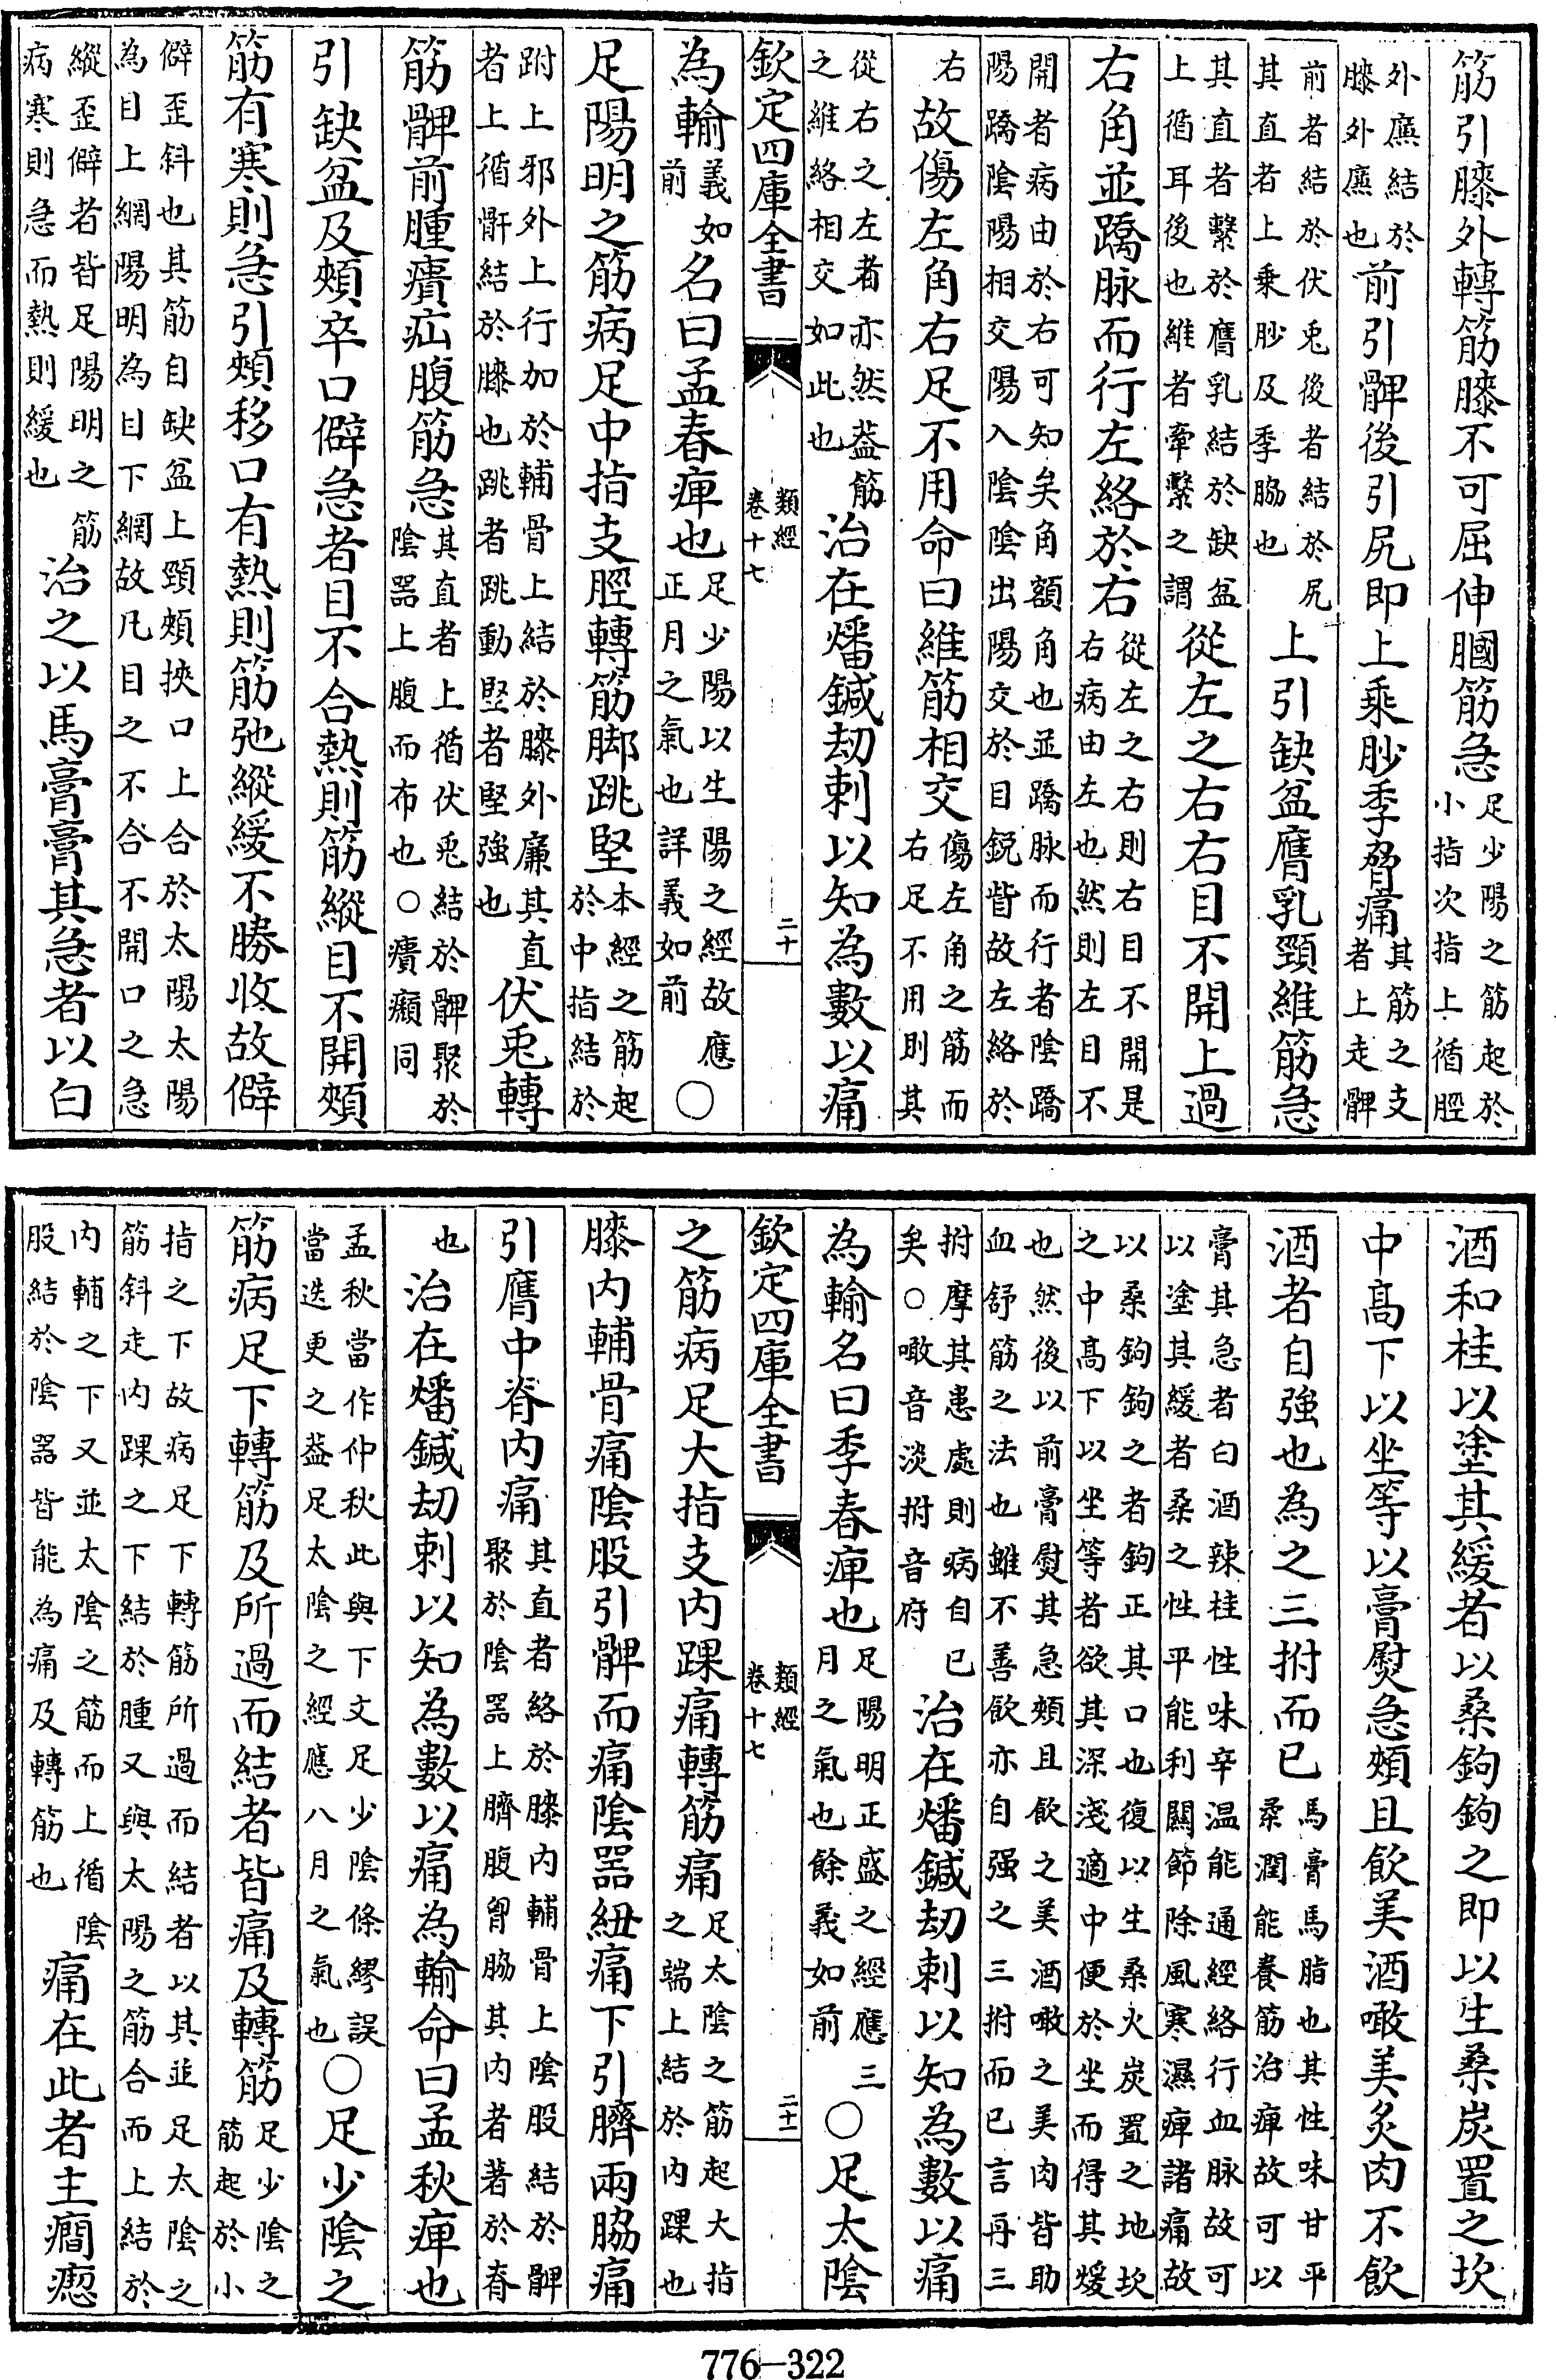 筋引膝外轉筋膝不可屈伸膕筋急足少陽之筋起於小指次指上循脛
外廉結於膝外廉也前引髀後引尻即上乗䏚季脅痛其筋之支者上走髀
前者結於伏兎後者結於尻其直者上乗䏚及季脇也上引缺盆膺乳頸維筋急
其直者繫於膺乳結於缺盆上循耳後也維者牽繫之謂從左之右右目不開上過
右角並蹻脉而行左絡於右從左之右則右目不開是右病由左也然則左目不
開者病由於右可知矣角額角也並蹻脉而行者陰蹻陽蹻陰陽相交陽入陰陰出陽交於目鋭眥故左絡於
右故傷左角右足不用命曰維筋相交傷左角之筋而右足不用則其
從右之左者亦然葢筋之維絡相交如此也治在燔鍼刼刺以知為數以痛
欽定四庫全書 類經卷十七 二十
為輸義如前名曰孟春痺也足少陽以生陽之經故應正月之氣也詳義如前○
足陽明之筋病足中指支脛轉筋脚跳堅本經之筋起於中指結於
跗上邪外上行加於輔骨上結於膝外廉其直者上循骭結於膝也跳者跳動堅者堅強也伏兎轉
筋髀前腫㿉疝腹筋急其直者上循伏兎結於髀聚於陰器上腹而布也○㿉癩同
引缺盆及頰卒口僻急者目不合熱則筋縱目不開頰
筋有寒則急引頰移口有熱則筋弛縱緩不勝收故僻
僻歪斜也其筋自缺盆上頸頰挾口上合於太陽太陽為目上網陽明為目下網故凡目之不合不開口之急
縱歪僻者皆足陽明之筋病寒則急而熱則緩也治之以馬膏膏其急者以白
酒和桂以塗其緩者以桑鉤鉤之即以生桑炭置之坎
中髙下以坐等以膏熨急頰且飲美酒噉美炙肉不飲
酒者自強也為之三拊而已馬膏馬脂也其性味甘平柔潤能養筋治痺故可以
膏其急者白酒辣桂性味辛温能通經絡行血脉故可以塗其緩者桑之性平能利關節除風寒濕痺諸痛故
以桑鉤鉤之者鉤正其口也復以生桑火炭置之地坎之中髙下以坐等者欲其深淺適中便於坐而得其煖
也然後以前膏熨其急頰且飲之美酒噉之美肉皆助血舒筋之法也雖不善飲亦自强之三拊而已言再三
拊摩其患處則病自已矣○噉音淡拊音府治在燔鍼刼刺以知為數以痛
為輸名曰季春痺也足陽明正盛之經應三月之氣也餘義如前○足太陰
欽定四庫全書 類經卷十七 二十一
之筋病足大指支内踝痛轉筋痛足太陰之筋起大指之端上結於内踝也
膝内輔骨痛陰股引髀而痛陰器紐痛下引臍兩脇痛
引膺中脊内痛其直者絡於膝内輔骨上陰股結於髀聚於陰器上臍腹胷脇其内者著於脊
也治在燔鍼刼刺以知為數以痛為輸命曰孟秋痺也
孟秋當作仲秋此與下文足少陰條繆誤當迭更之葢足太陰之經應八月之氣也○足少陰之
筋病足下轉筋及所過而結者皆痛及轉筋足少陰之筋起於小
指之下故病足下轉筋所過而結者以其並足太陰之筋斜走内踝之下結於腫又與太陽之筋合而上結於
内輔之下又並太陰之筋而上循陰股結於陰器皆能為痛及轉筋也痛在此者主癎瘛
776—322